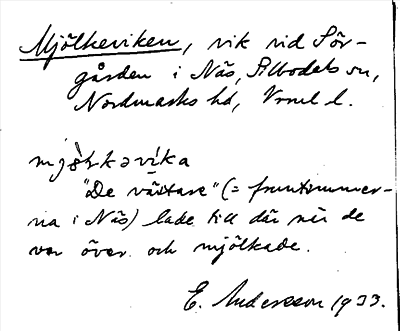 Mjölkeviken, vik vid Sör-
gården i Näs, Silbodals sn,
Nordmarks hd, Vrml l.
mjölkəvika
"De våstare" (= fruntimmer-
na i Näs) lade till där när de
var över och mjölkade.
E. Andersson 1933.